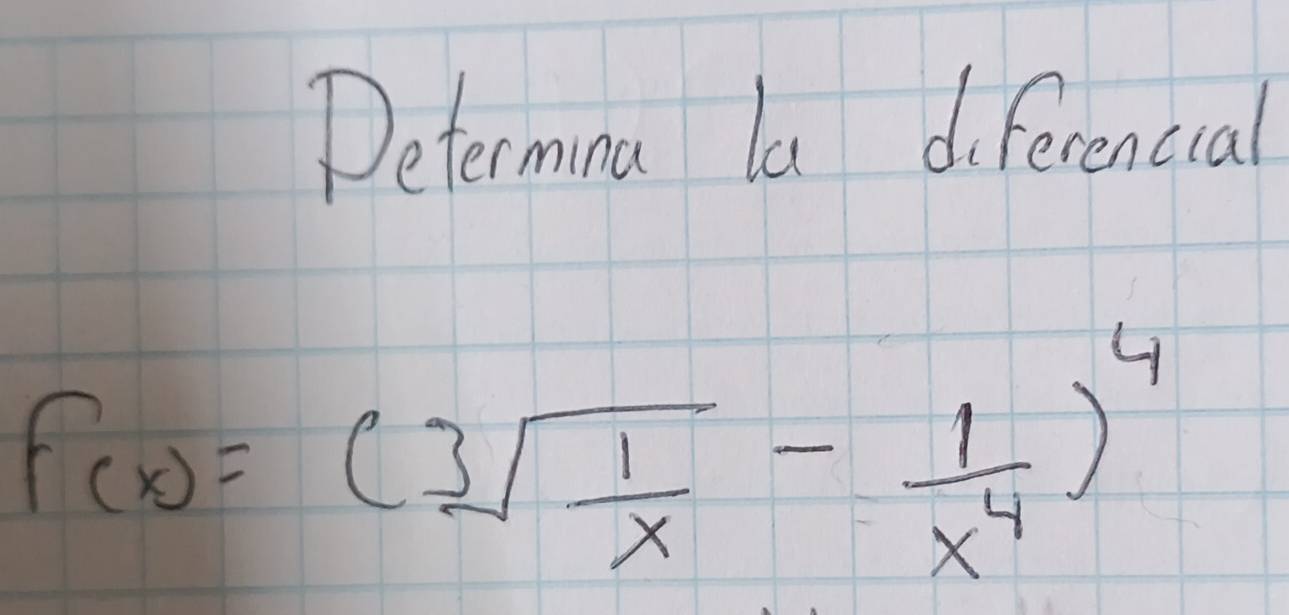 Determina la diferencial
f(x) = (∛(1/x) - 1/x⁴)⁴